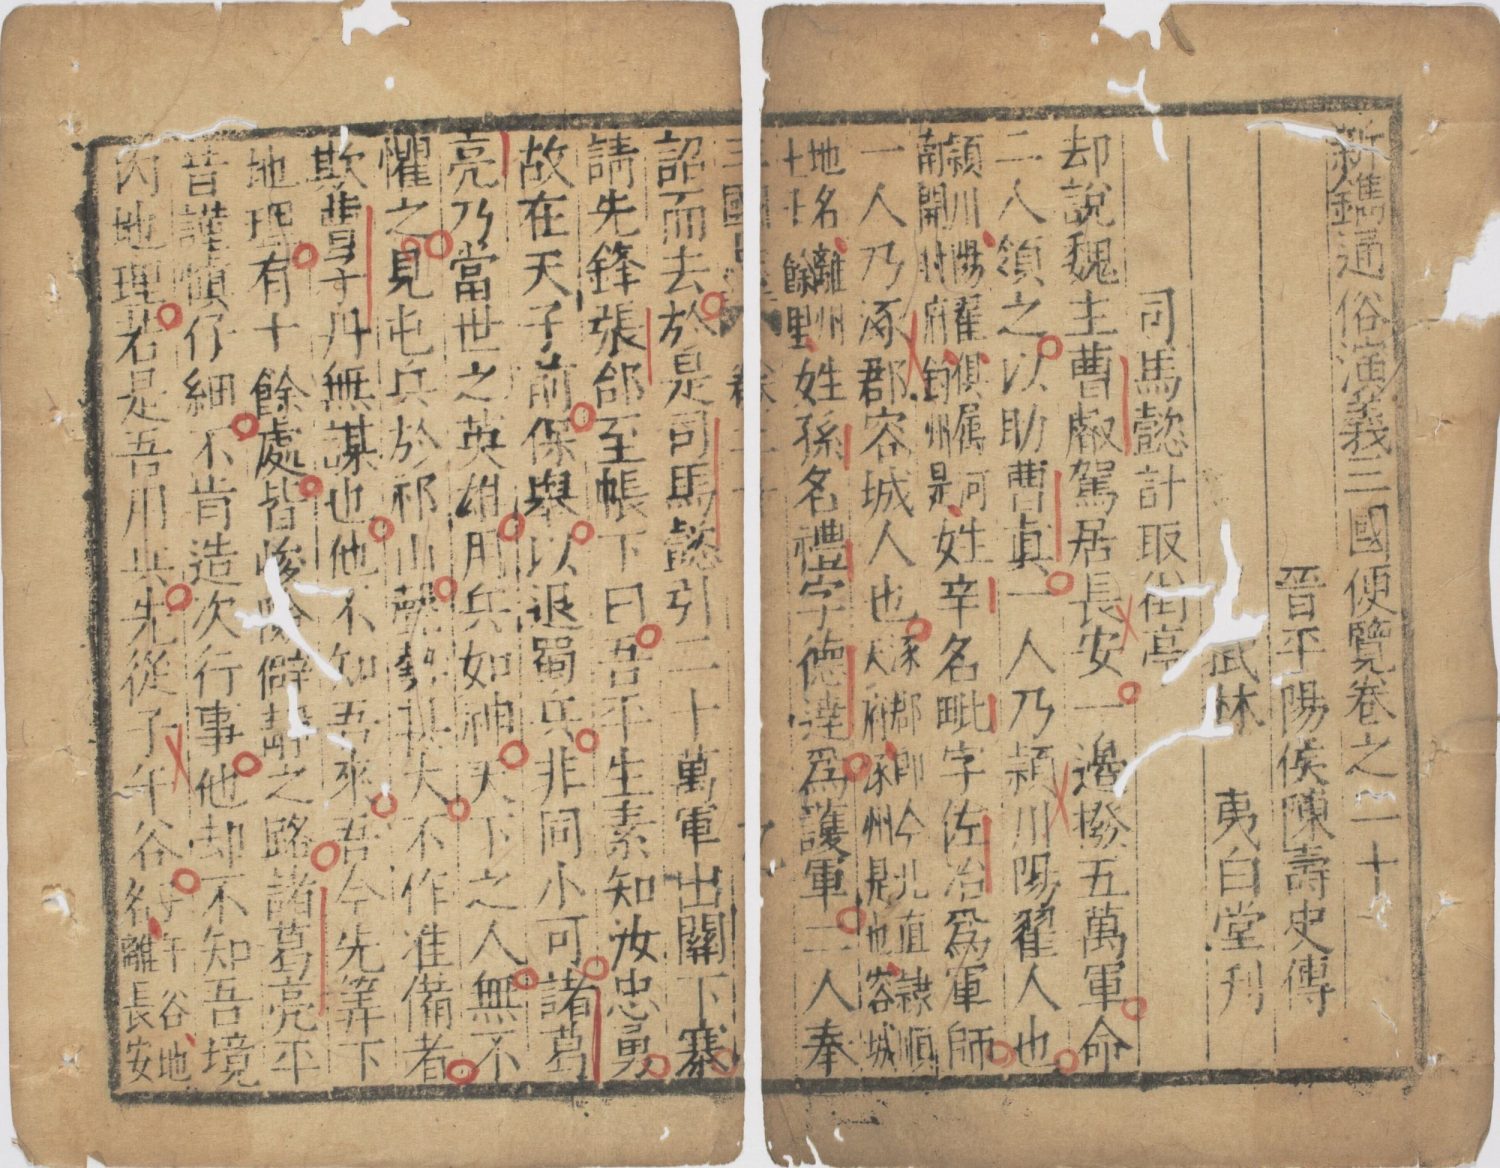 新鐫通俗演義三國便覽卷之二十
晉平陽侯陳壽史傳
武林 夷白堂刋
司馬懿計取街亭
却說魏主曹叡駕居長安一邊撥五萬軍命
二人領之以助曹真一人乃潁川陽翟人也
潁川陽翟俱属河
南開封府鈞州是
姓辛名毗字佐治爲軍師
一人乃涿郡容城人也
涿郡即今北直隷順
天府涿州是也容城
地名離州
七十餘里
姓孫名禮字德達爲護軍二人奉
詔而去於是司馬懿引二十萬軍出關下寨
請先鋒張郃至帳下曰吾平生素知汝忠勇
故在天子前保舉以退蜀兵非同小可諸葛
亮乃當世之英雄用兵如神天下之人無不
懼之見屯兵於祁山聲勢甚大不作准備者
欺曹子丹無謀也他不知吾來吾今先筭下
地理有十餘處皆峻險僻靜之路諸葛亮平
昔謹慎仔細不肯造次行事他却不知吾境
内地理若是吾用兵先從子午谷徑
午谷地
離長安